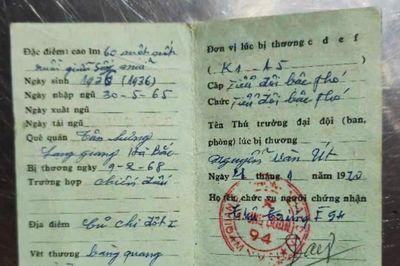 Đặc điểm: cao 1m 60 nốt ruồi
Ngày sinh 1936 (1936)
Ngày nhập ngũ 30-5-65
Ngày xuất ngũ
Ngày tái ngũ
Quê quán Tân Hưng
Lạng giang Hà Bắc
Bị thương ngày 9-2-68
Trường hợp chiến đấu
Địa điểm Củ chi đợt I
Vết thương bàng quang
Đơn vị lúc bị thương c d e f
(K1 - A5)
Cấp Tiểu đội bậc phó
Chức Tiểu đội bậc phó
Tên Thủ trưởng đại đội (ban,
phòng) lúc bị thương
Nguyễn Văn Út
Ngày tháng 1970
Họ tên, chức vụ người chứng nhận
94